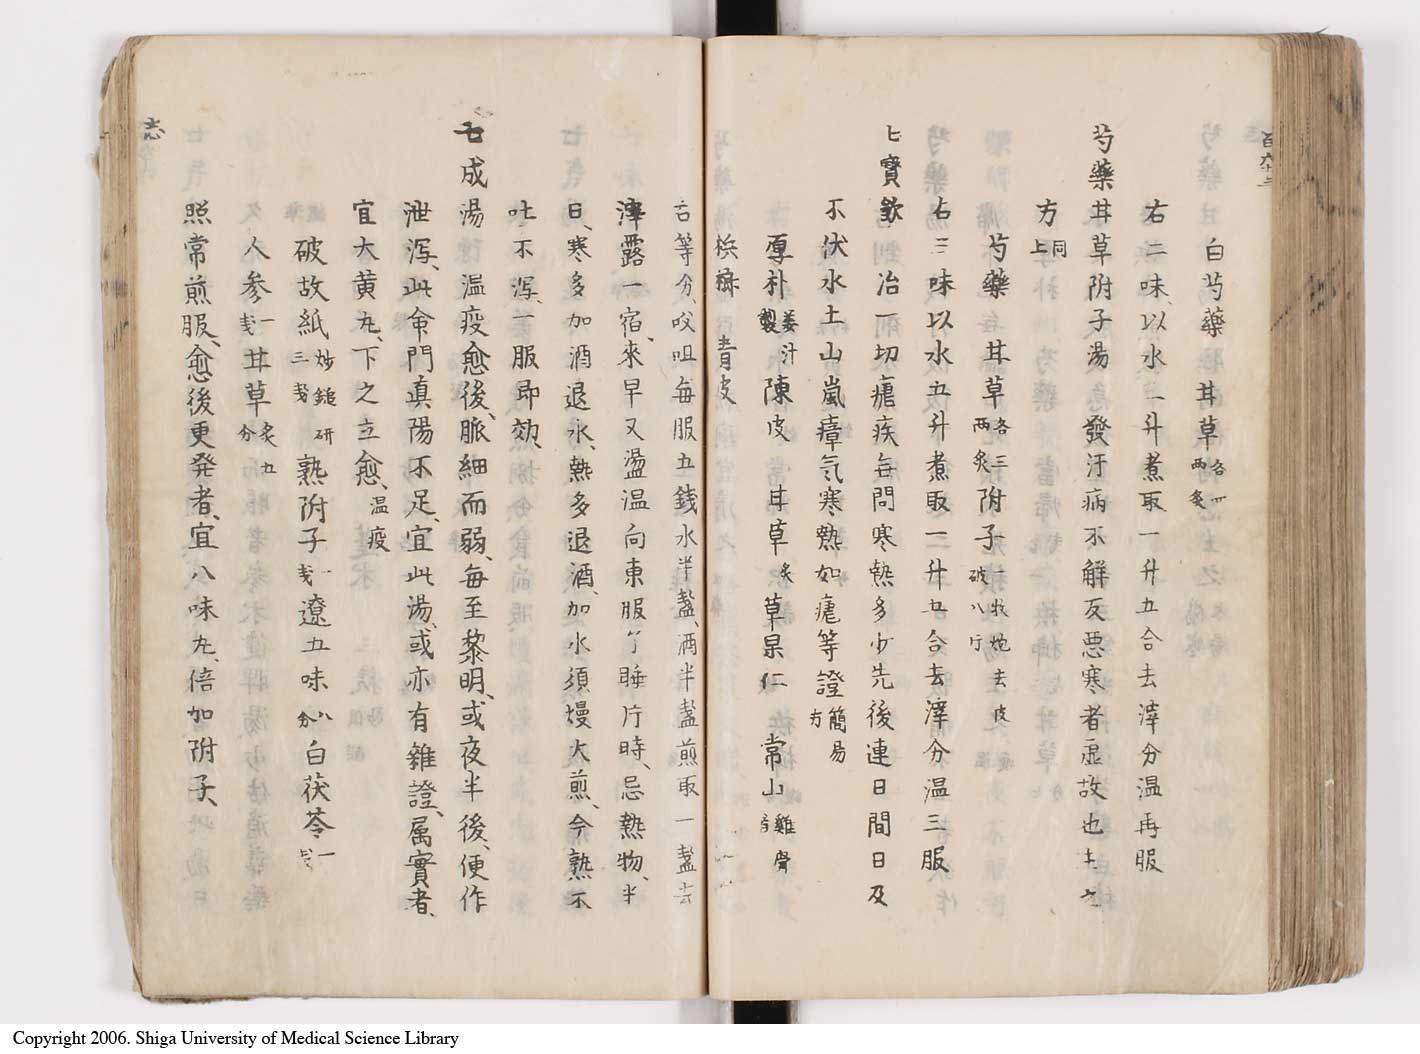 百六十三
白芍藥 甘草 各四兩炙
右二味、以水三升煮取一升五合去滓分温再服
芍藥甘草附子湯 發汗病不解反惡寒者虛故也主之
方 同上
芍藥 甘草 各三兩炙 附子 一枚炮去皮破八斤
右三味以水五升煮取一升五合去滓分温三服
七寶飲 冶一切瘧疾毎問寒熱多少先後連日間日及
不伏水土山嵐瘴気寒熱如瘧等證 簡易方
厚朴 姜汁製 陳皮 甘草 炙 草果仁 常山 雞骨者
梹榔 青皮
右等分、㕮咀毎服五銭水半盞、酒半盞煎取一盞去
滓露一宿、來早又盪温向東服了睡片時、忌熱物、半
日、寒多加酒退水、熱多退酒、加水須慢大煎、今熟不
吐不瀉、一服即効、
七成湯 温疫愈後、脈細而弱、毎至黎明、或夜半後、便作
泄瀉、此命門眞陽不足、宜此湯、或亦有雜證、属實者、
宜大黄丸、下之立愈、温疫
破故紙 炒鎚研三戔 熟附子 一戔 遼五味 八分 白茯苓 一戔
人参 一戔 甘草 炙五分
照常煎服、愈後更発者、宜八味丸、倍加附子、
志
Copyright 2006. Shiga University of Medical Science Library